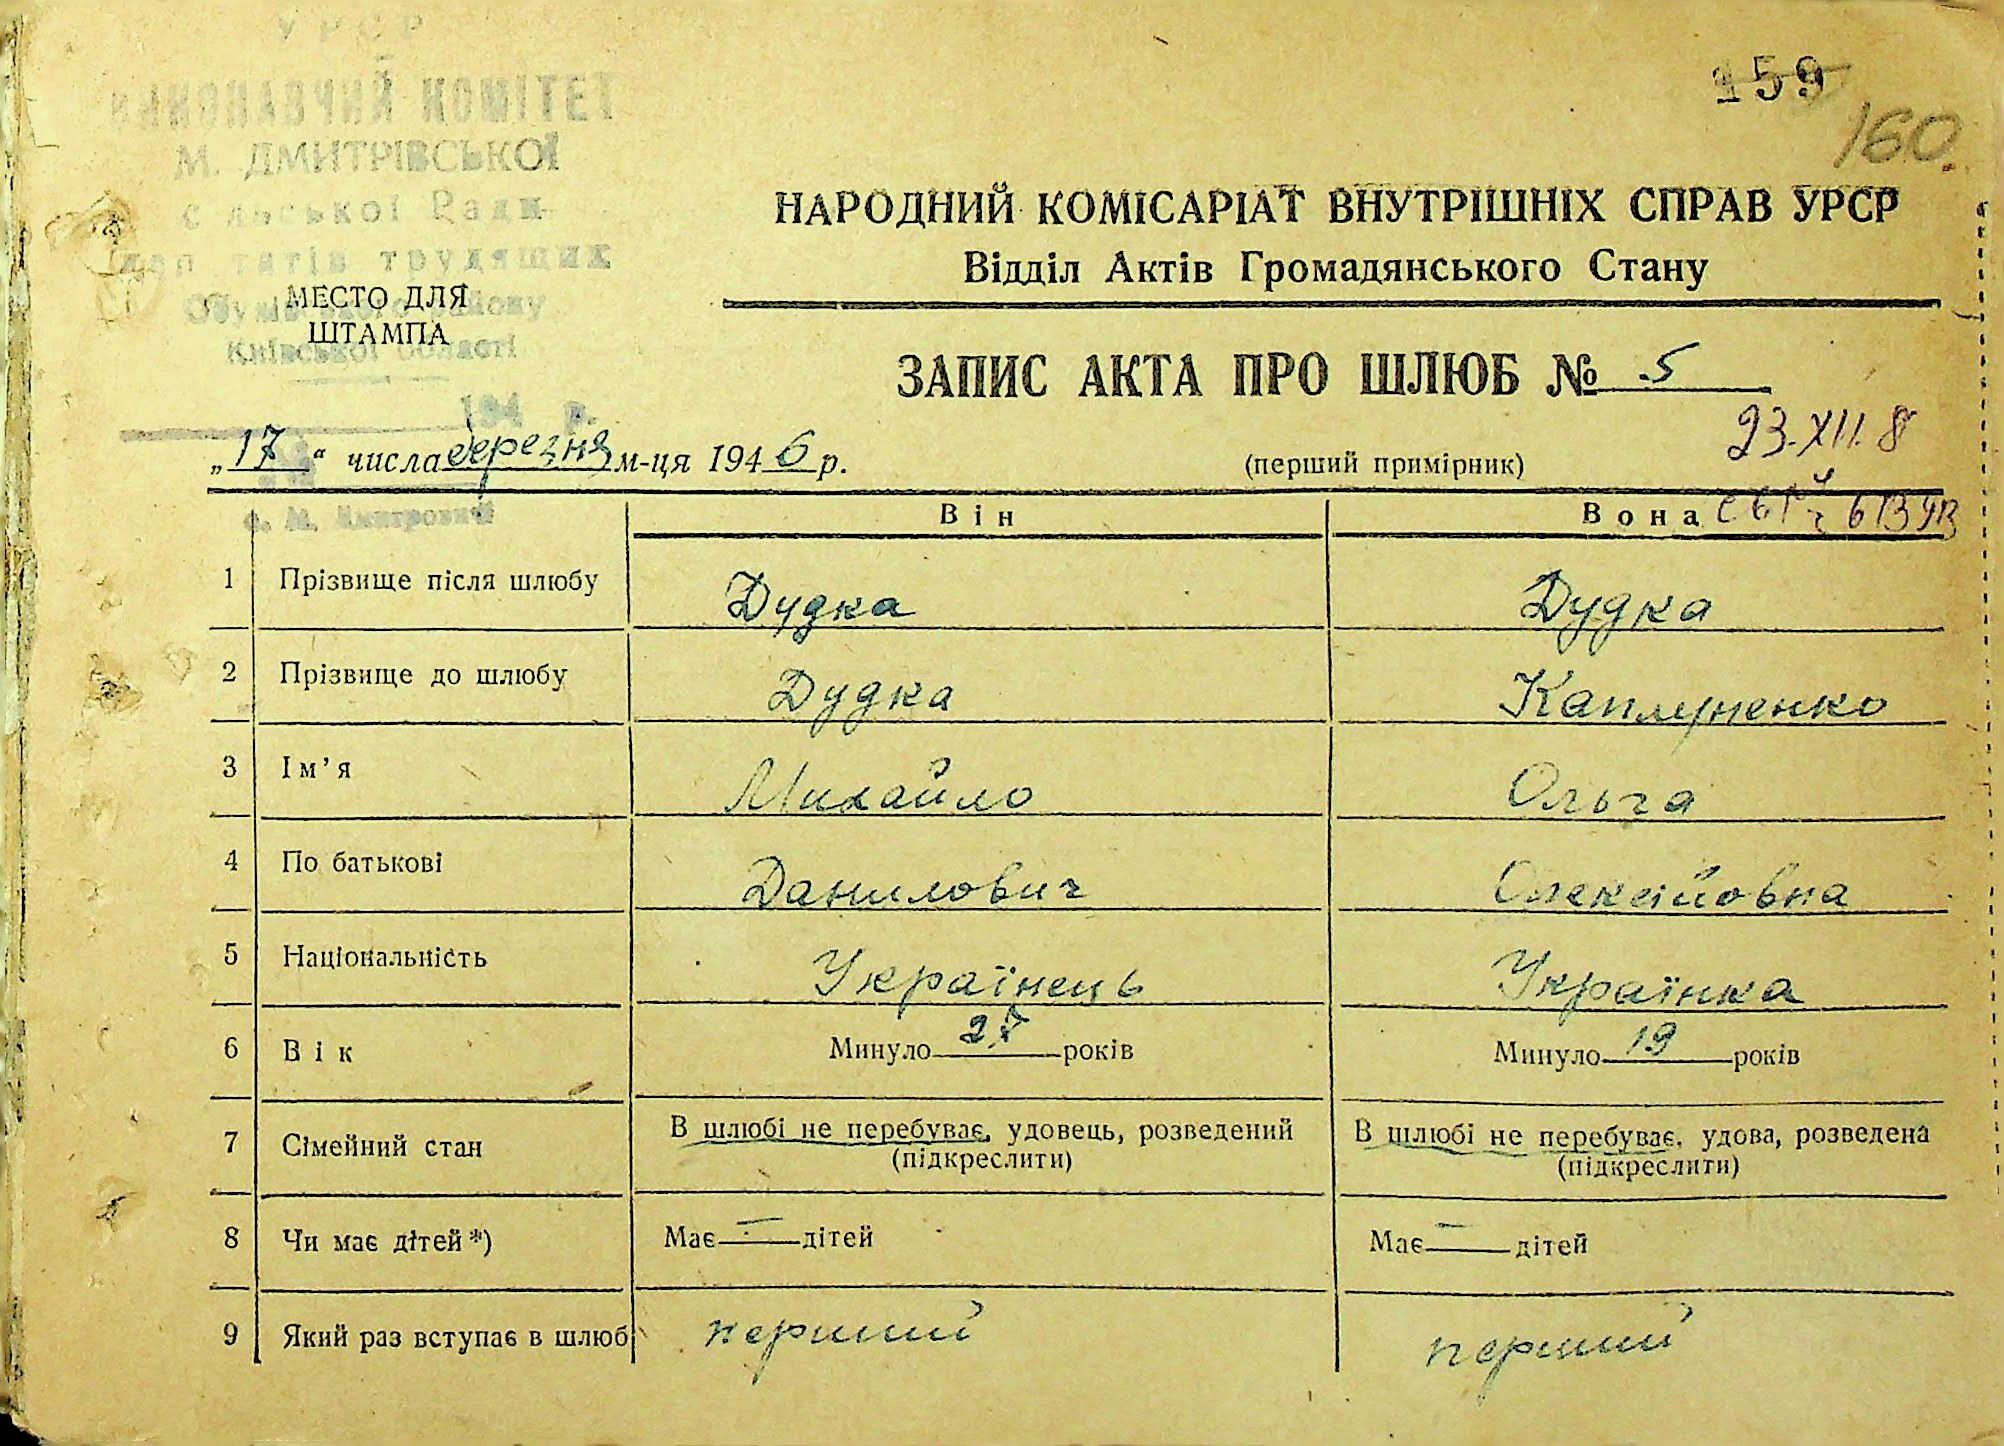 УРСР
ВИКОНАВЧИЙ КОМІТЕТ
М. ДМИТРІВСЬКОЇ
сільської Ради
депутатів трудящих
Обухівського району
Київської області
194 р.
с. М. Дмитровичі
МЕСТО ДЛЯ
ШТАМПА
159
160
НАРОДНИЙ КОМІСАРІАТ ВНУТРІШНІХ СПРАВ УРСР
Відділ Актів Громадянського Стану
ЗАПИС АКТА ПРО ШЛЮБ № 5
„17“ числа березня м-ця 1946 р.
(перший примірник)
23.XII.8
Він Вона
1 Прізвище після шлюбу Дудка Дудка
2 Прізвище до шлюбу Дудка Каплуненко
3 Ім’я Михайло Ольга
4 По батькові Данилович Олексійовна
5 Національність Українець Українка
6 Вік Минуло 27 років Минуло 19 років
7 Сімейний стан В шлюбі не перебуває, удовець, розведений В шлюбі не перебуває, удова, розведена
(підкреслити) (підкреслити)
8 Чи має дітей*) Має — дітей Має — дітей
9 Який раз вступає в шлюб перший перший